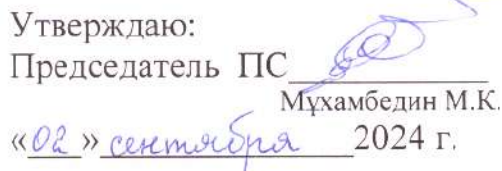 Утверждаю:
Председатель ПС
Мұхамбедин М.К.
«02» сентября 2024 г.